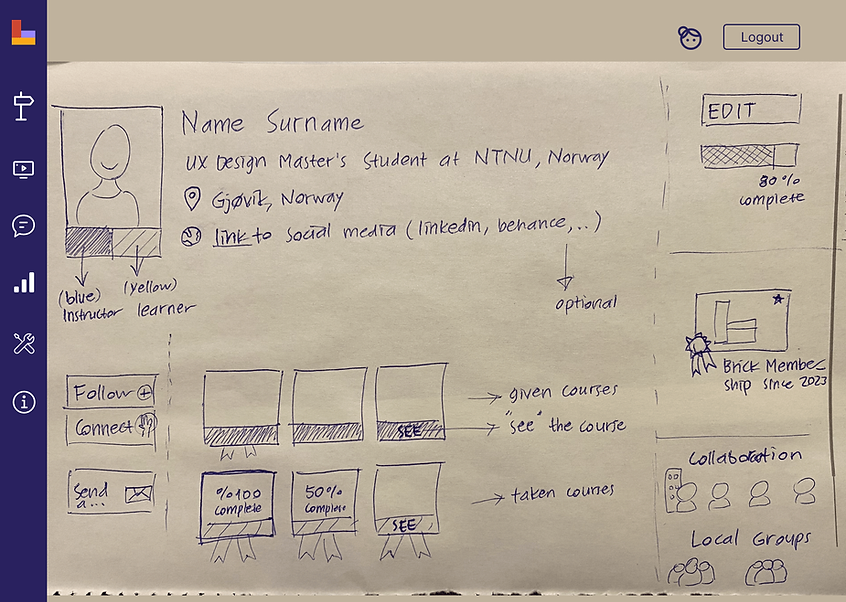 Logout
Name Surname
UX Design Master's Student at NTNU, Norway
Gjøvik, Norway
link to social media (linkedin, behance,..)
optional
(blue)
Instructor
(yellow)
learner
EDIT
80%
complete
Brick Member
ship since 2023
Follow
Connect
Send
a...
given courses
SEE
"see" the course
%100
complete
50%
complete
SEE
taken courses
Collaboration
Local Groups